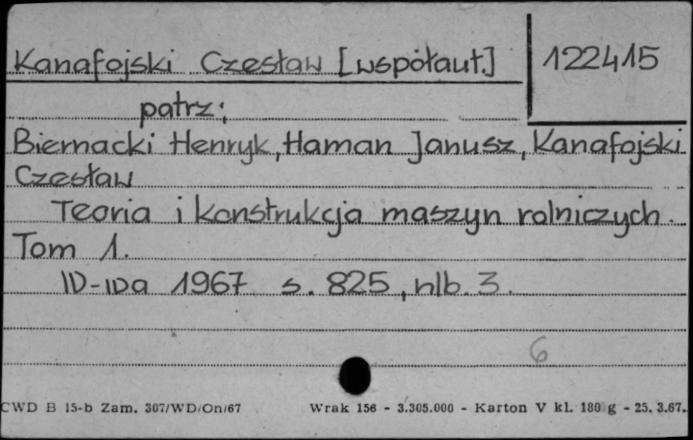 Kanafojski Czesław [współaut.] 122415
patrz:
Biernacki Henryk, Haman Janusz, Kanafojski
Czesław
Teoria i konstrukcja maszyn rolniczych.
Tom 1.
W-wa 1967 s. 825, nlb. 3.
6
CWD B 15-b Zam. 307/WD/On/67 Wrak 156 - 3.305.000 - Karton V kl. 180 g - 25.3.67.